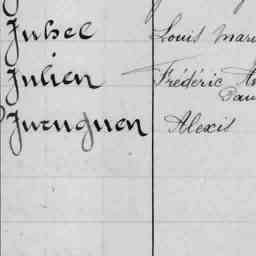 Juhel Louis Mari
Julien Frédéric
Juvenguen Alexis